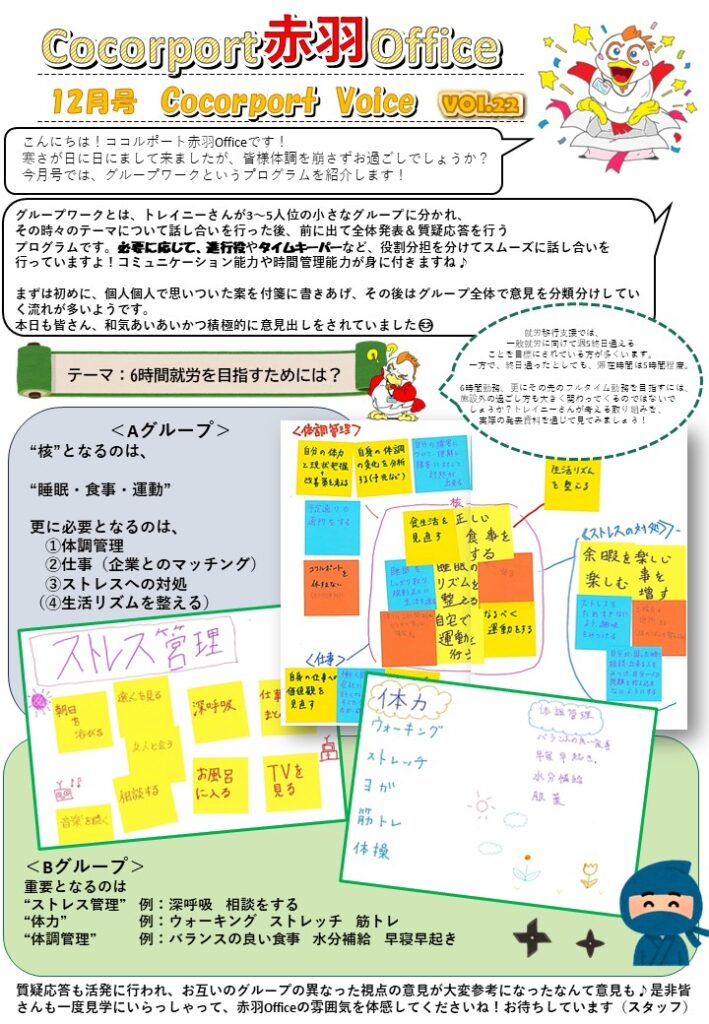 Cocorport赤羽Office
12月号 Cocorport Voice VOl.22
こんにちは！ココルポート赤羽Officeです！
寒さが日に日にまして来ましたが、皆様体調を崩さずお過ごしでしょうか？
今月号では、グループワークというプログラムを紹介します！
グループワークとは、トレイニーさんが3～5人位の小さなグループに分かれ、
その時々のテーマについて話し合いを行った後、前に出て全体発表＆質疑応答を行う
プログラムです。必要に応じて、進行役やタイムキーパーなど、役割分担を分けてスムーズに話し合いを
行っていますよ！コミュニケーション能力や時間管理能力が身に付きますね♪
まずは初めに、個人個人で思いついた案を付箋に書きあげ、その後はグループ全体で意見を分類分けしてい
く流れが多いようです。
本日も皆さん、和気あいあいかつ積極的に意見出しをされていました😊
就労移行支援では、
一般就労に向けて週5終日通える
ことを目標にされている方が多くいます。
一方で、終日通ったとしても、滞在時間は5時間程度。
6時間勤務、更にその先のフルタイム勤務を目指すには、
施設外の過ごし方も大きく関わってくるのではないで
しょうか？トレイニーさんが考える取り組みを、
実際の発表資料を通じて見てみましょう！
テーマ：6時間就労を目指すためには？
＜Aグループ＞
“核”となるのは、
“睡眠・食事・運動”
更に必要となるのは、
①体調管理
②仕事（企業とのマッチング）
③ストレスへの対処
（④生活リズムを整える）
<体調管理>
自分の体力
と現状把握
+
改善策を考える
自身の体調
の変化を分析
する
生活リズム
を整える
核
食生活を
見直す
正しい
食事を
する
ココルポートを
休まない
睡眠の
リズムを
整える
自宅で
運動を
行う
なるべく
運動をする
<ストレスの対処>
余暇を楽しむ
楽しい事を
増す
<仕事>
自身の仕事への
価値観を
見直す
ストレス管理
朝日
を
浴びる
遠くを見る
友人と会う
深呼吸
相談する
お風呂
に入る
TVを
見る
音楽を聴く
体力
ウォーキング
ストレッチ
ヨガ
筋トレ
体操
体調管理
バランスの良い食事
早寝早起き
水分補給
服薬
＜Bグループ＞
重要となるのは
“ストレス管理” 例：深呼吸 相談をする
“体力” 例：ウォーキング ストレッチ 筋トレ
“体調管理” 例：バランスの良い食事 水分補給 早寝早起き
質疑応答も活発に行われ、お互いのグループの異なった視点の意見が大変参考になったなんて意見も♪是非皆
さんも一度見学にいらっしゃって、赤羽Officeの雰囲気を体感してくださいね！お待ちしています（スタッフ）